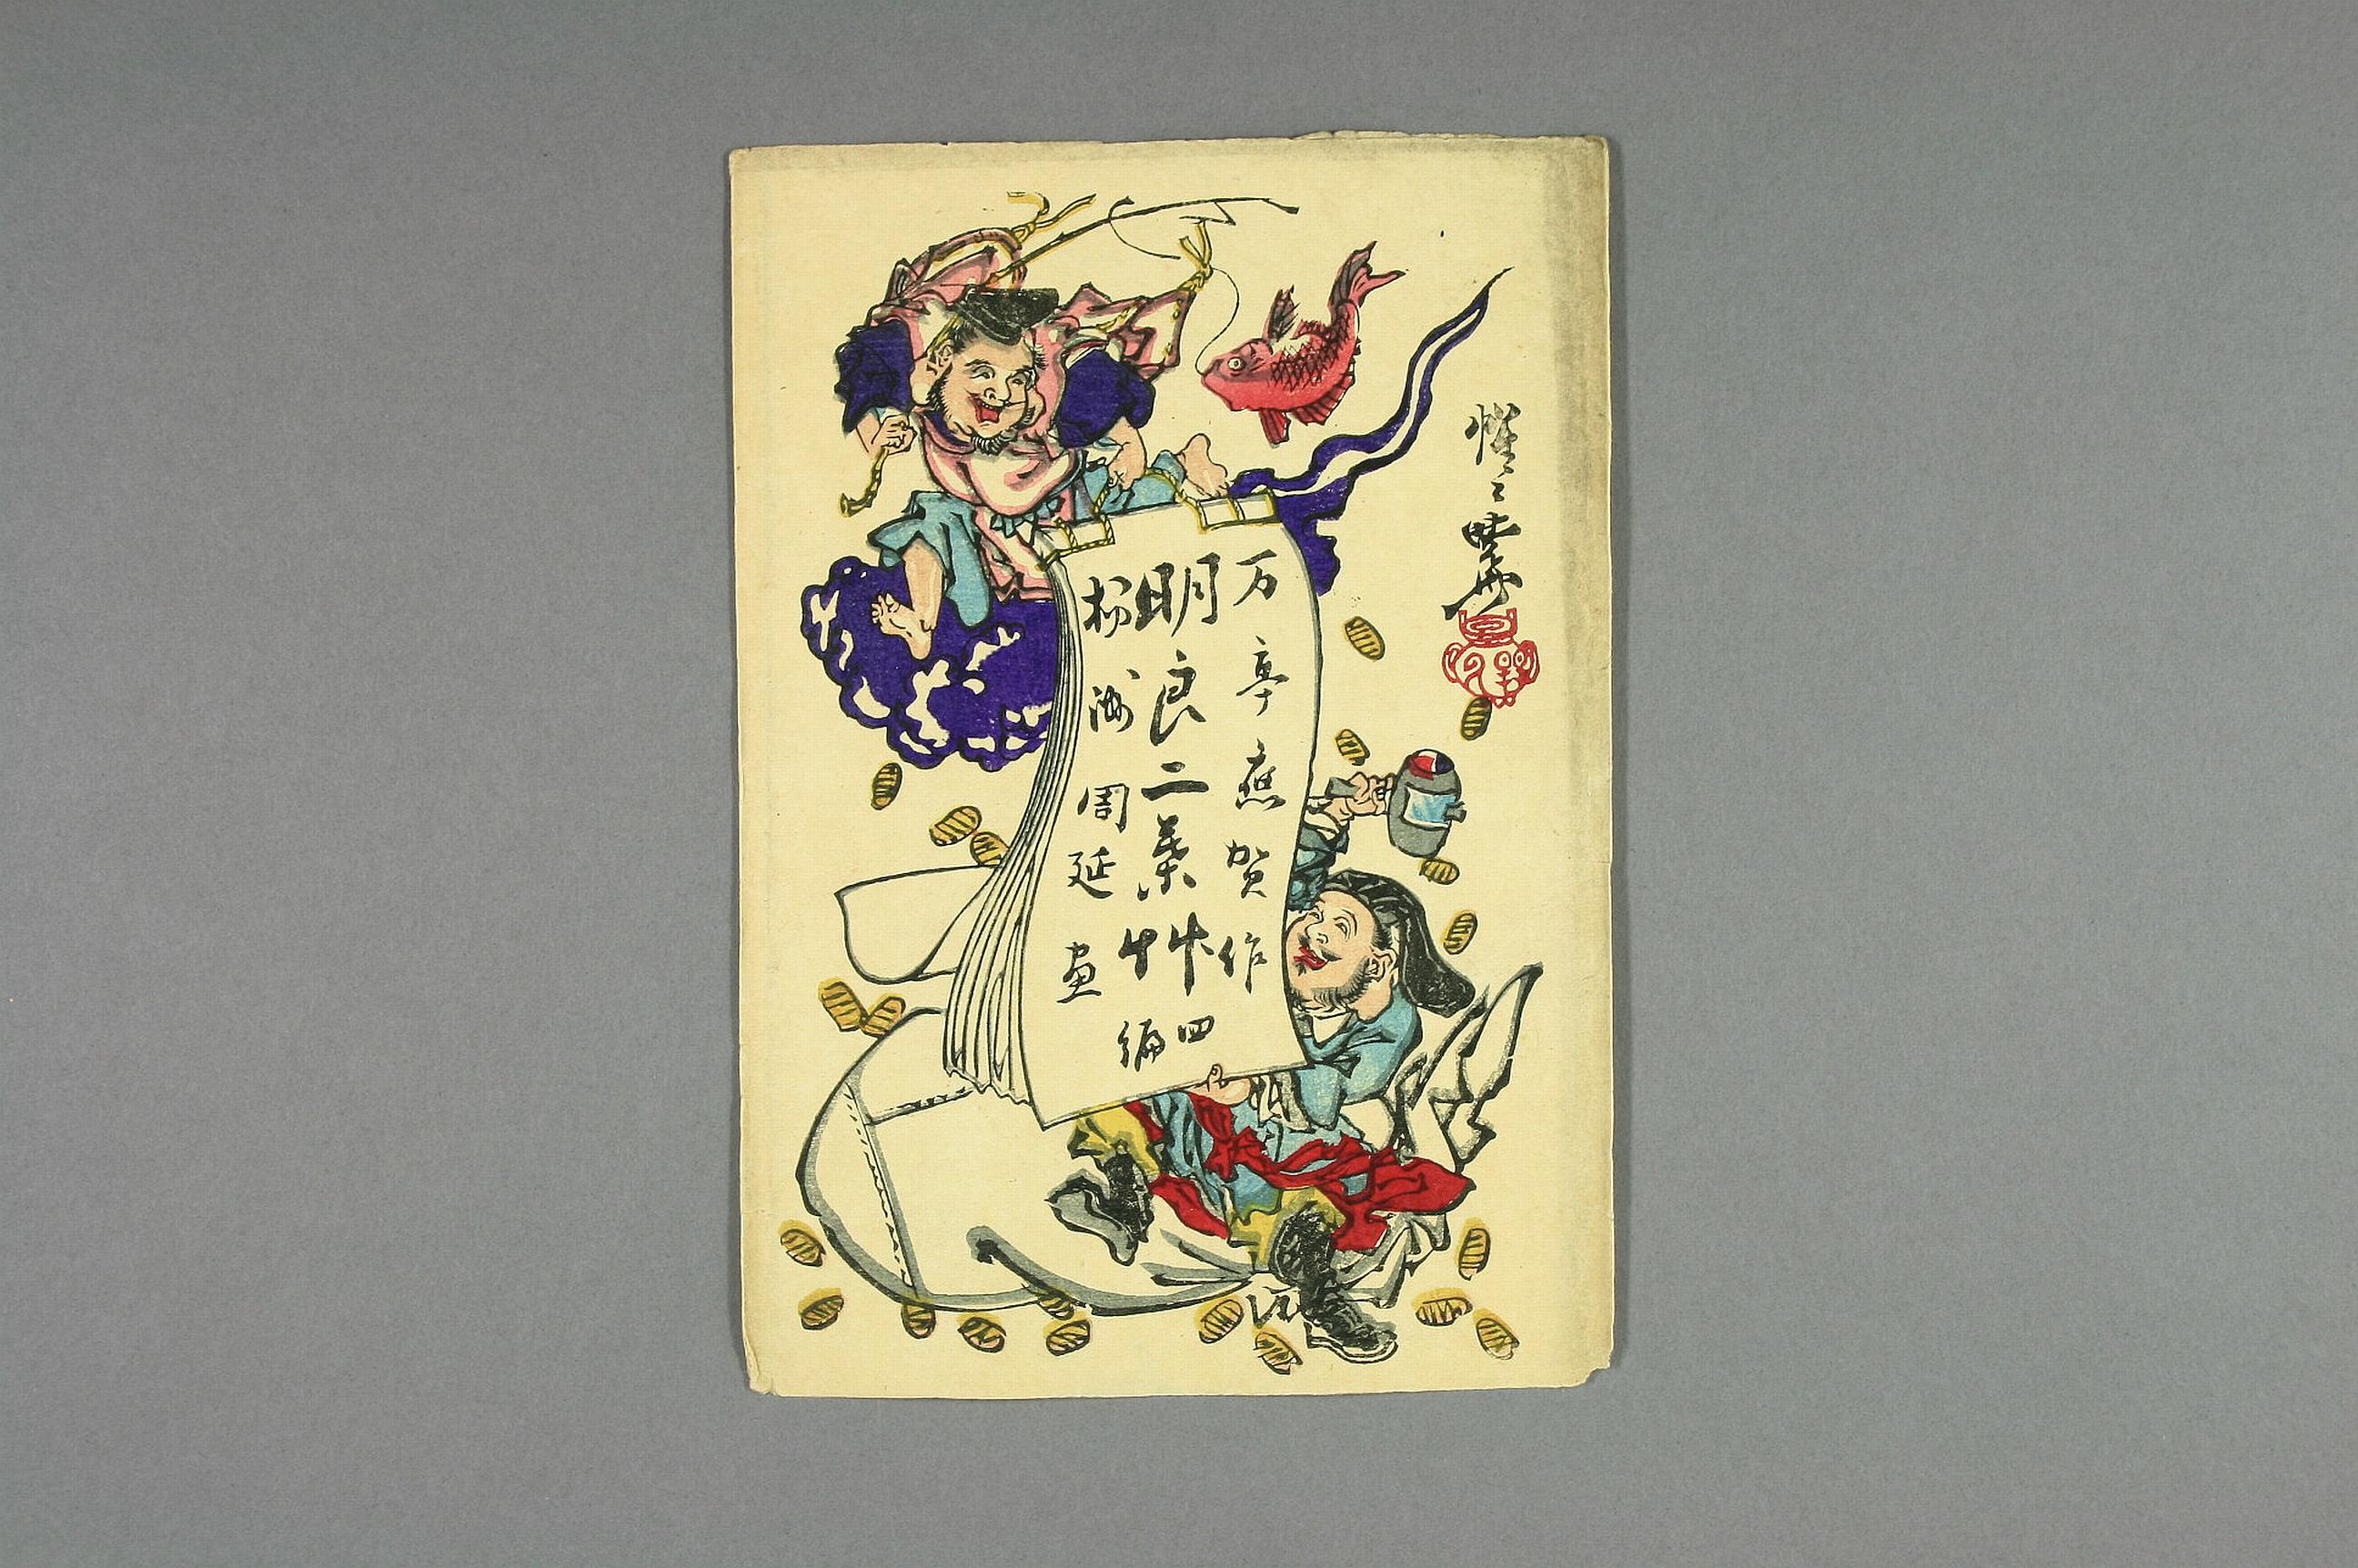 惺々暁斎
万亭應賀作
明良二葉艸
四編
楊洲周延画